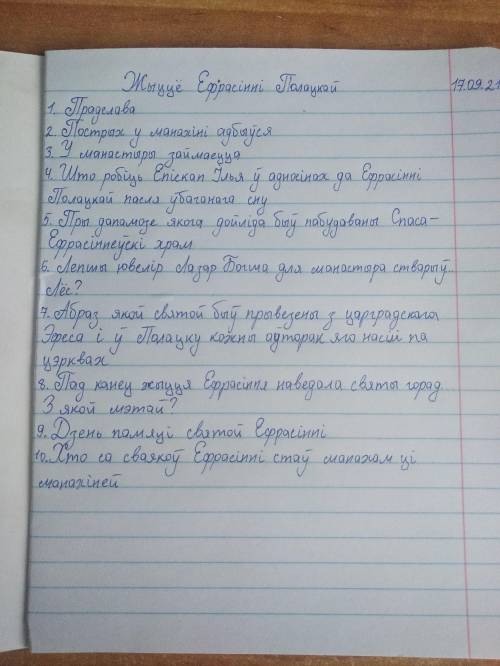 Жыццё Ефрасінні Полацкай 17.09.21
1. Прадслава
2. Пострых у манахіні адбыўся
3. У манастыры займаецца
4. Што робіць Епіскап Ілья ў адносінах да Ефрасінні
Полацкай пасля ўбачанага сну
5. Пры дапамозе якога дойліда быў пабудаваны Спаса-
Ефрасіннеўскі храм
6. Лепшы ювелір Лазар Богша для манастыра стварыў..
Лёс?
7. Абраз якой святой быў прывезены з царградскага
Эфеса і ў Полацку кожны аўторак яго насілі па
цэрквах
8. Пад канец жыцця Ефрасіння наведала святы горад.
З якой мэтай?
9. Дзень памяці святой Ефрасінні
10. Хто са сваякоў Ефрасінні стаў манахам ці
манахіняй